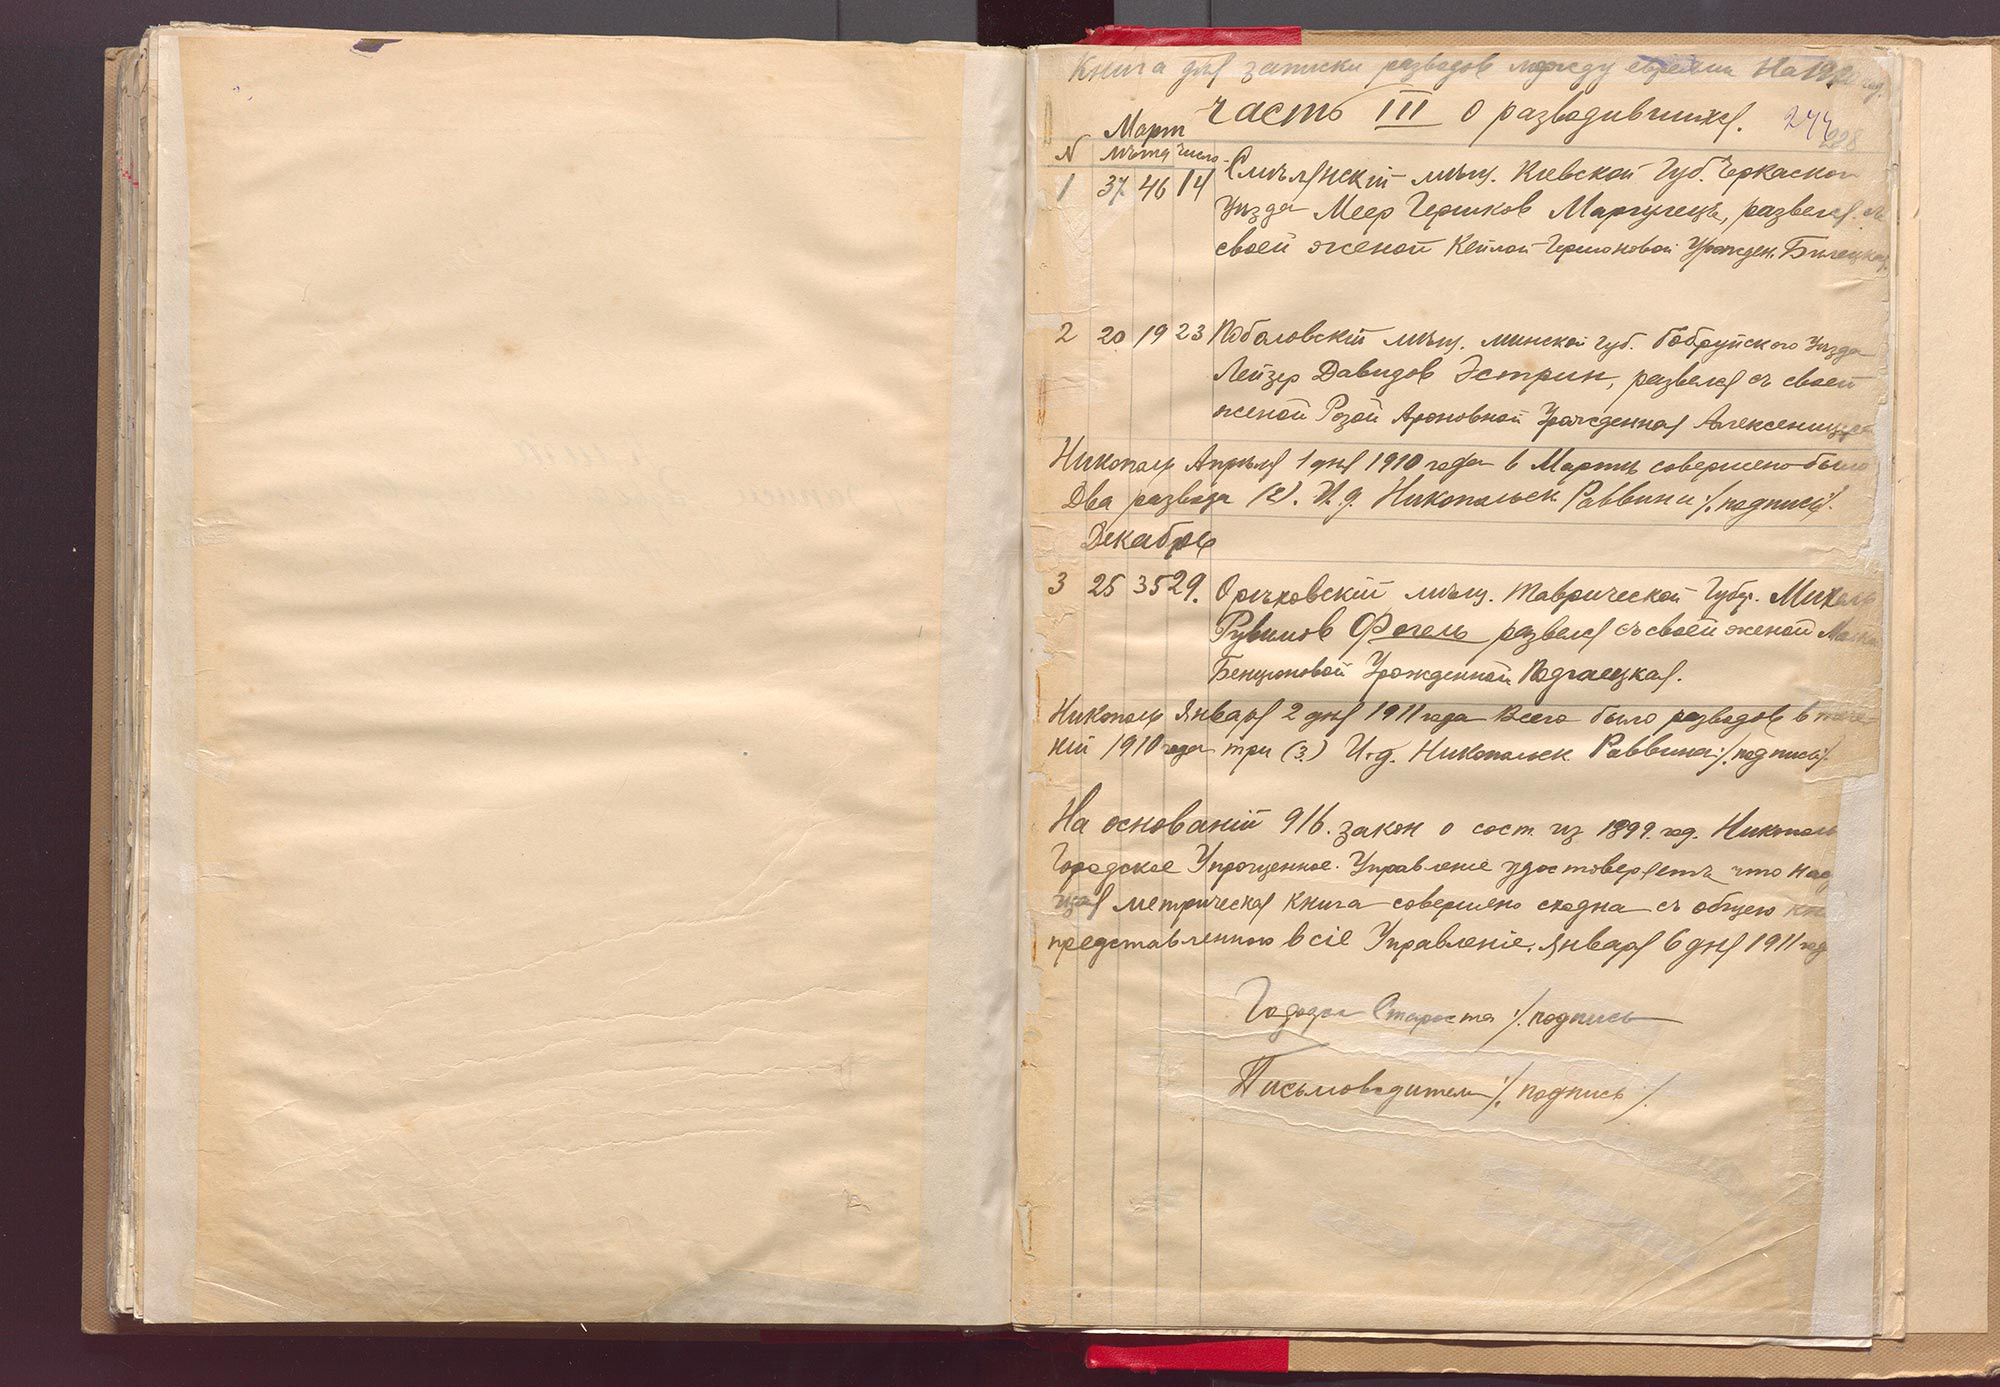 Книга для записки разводов между евреями на 1910 год.
Часть III о разводившихся. 244
228
Март
N мѣтъ число
1 37 46 14 Смѣлянскій мѣщ. Кіевской Губ. Черкаской
Уѣзда Меер Гершков Маргулецъ, развелся
своей женой Кейлой Гершоновой Урожден. Билецкая
2 20 19 23 мѣщ. минской губ. Бобруйского Уѣзда
Лейзер Давидов Эстрин, развелся съ своей
женой Розой Ароновной Урожденная
Никополь Апрѣля 1 дня 1910 года в Мартѣ совершено было
Два развода (2). И. д. Никопольск Раввина /. подпись /.
Декабрь
3 25 35 29. Орѣховскій мѣщ. Таврической Губер.
Рувимов Фогель развелся съ своей женой
Бенционовой Урожденной Подгаецкая.
Никополь Января 2 дня 1911 года Всего было разводов в тече-
ніи 1910 года три (3) И. д. Никопольск Раввина /. подпись /.
На основаніи 916. закон о сост из 1899. год. Никополь
Городское Упрощенное. Управленіе удостоверяетъ что нас
щая метрическая книга совершено сходна съ общею
представленною в сіе Управленіе. Января 6 дня 1911 год
Староста /. подпись
Письмоводитель /. подпись /.